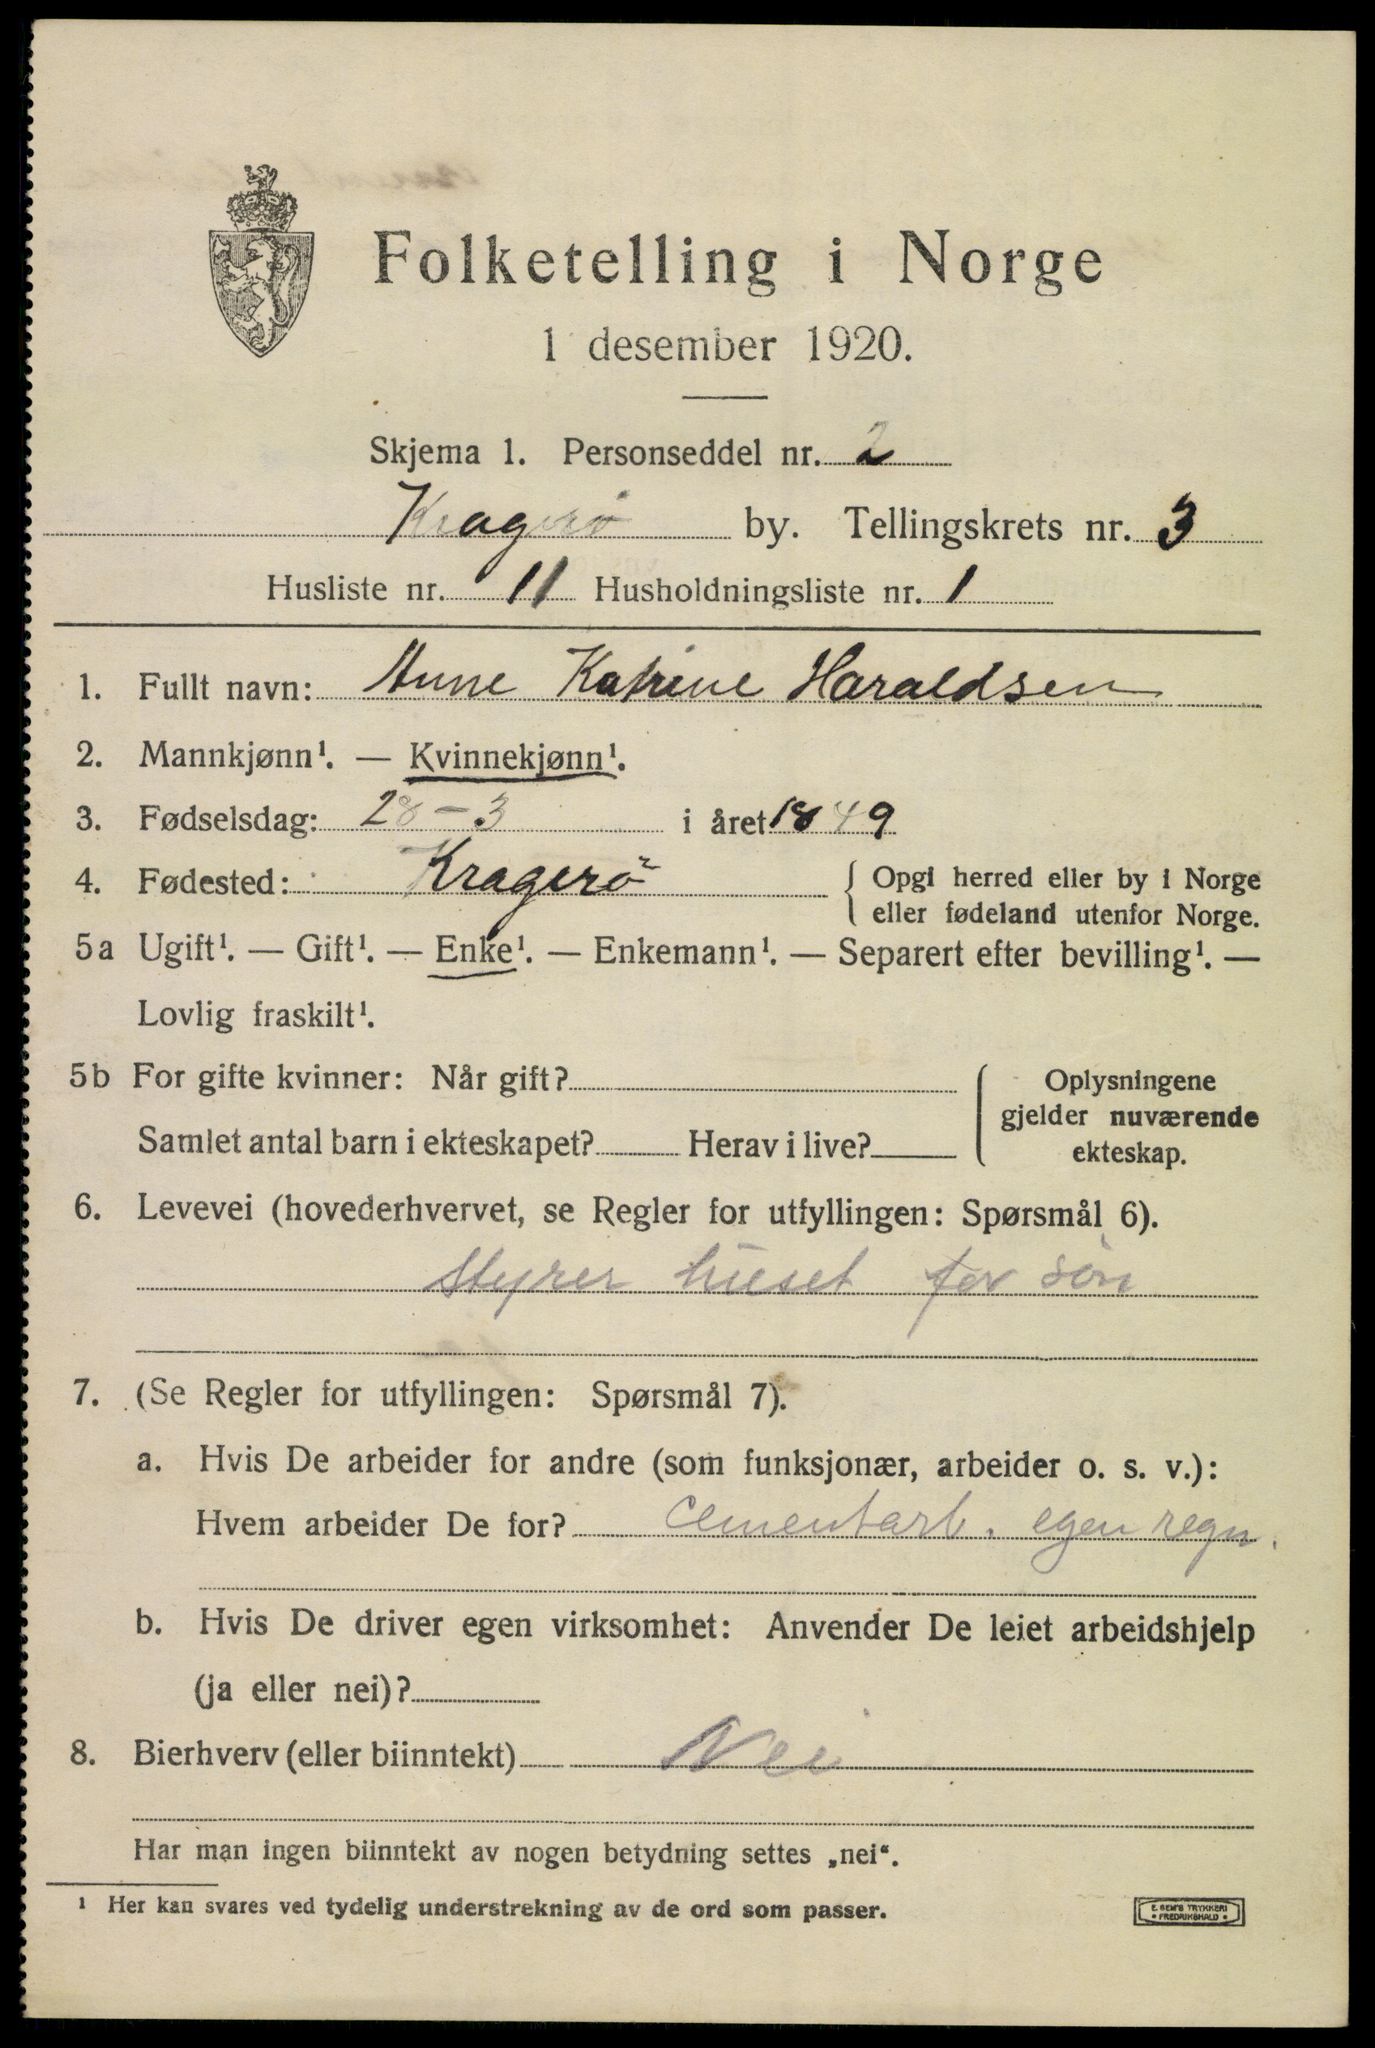 Folketelling i Norge
1 desember 1920.
Skjema 1. Personseddel nr. 2
Kragerö by. Tellingskrets nr. 3
Husliste nr. 11 Husholdningsliste nr. 1
1. Fullt navn: Anne Katrine Haraldsen
2. Mannkjønn¹. — Kvinnekjønn¹.
3. Fødselsdag: 28-3 i året 1849
4. Fødested: Kragerö { Opgi herred eller by i Norge
eller fødeland utenfor Norge.
5a Ugift¹. — Gift¹. — Enke¹. — Enkemann¹. — Separert efter bevilling¹. —
Lovlig fraskilt¹.
5b For gifte kvinner: Når gift? { Oplysningene
gjelder nuværende
Samlet antal barn i ekteskapet? Herav i live? ekteskap.
6. Levevei (hovederhvervet, se Regler for utfyllingen: Spørsmål 6).
Styrer huset for sön
7. (Se Regler for utfyllingen: Spørsmål 7).
a. Hvis De arbeider for andre (som funksjonær, arbeider o. s. v.):
Hvem arbeider De for? Cementarb. egen regn.
b. Hvis De driver egen virksomhet: Anvender De leiet arbeidshjelp
(ja eller nei)?
8. Bierhverv (eller biinntekt) Nei
Har man ingen biinntekt av nogen betydning settes „nei“.
¹ Her kan svares ved tydelig understrekning av de ord som passer.
E. SEM'S TRYKKERI
• FREDRIKSHALD •